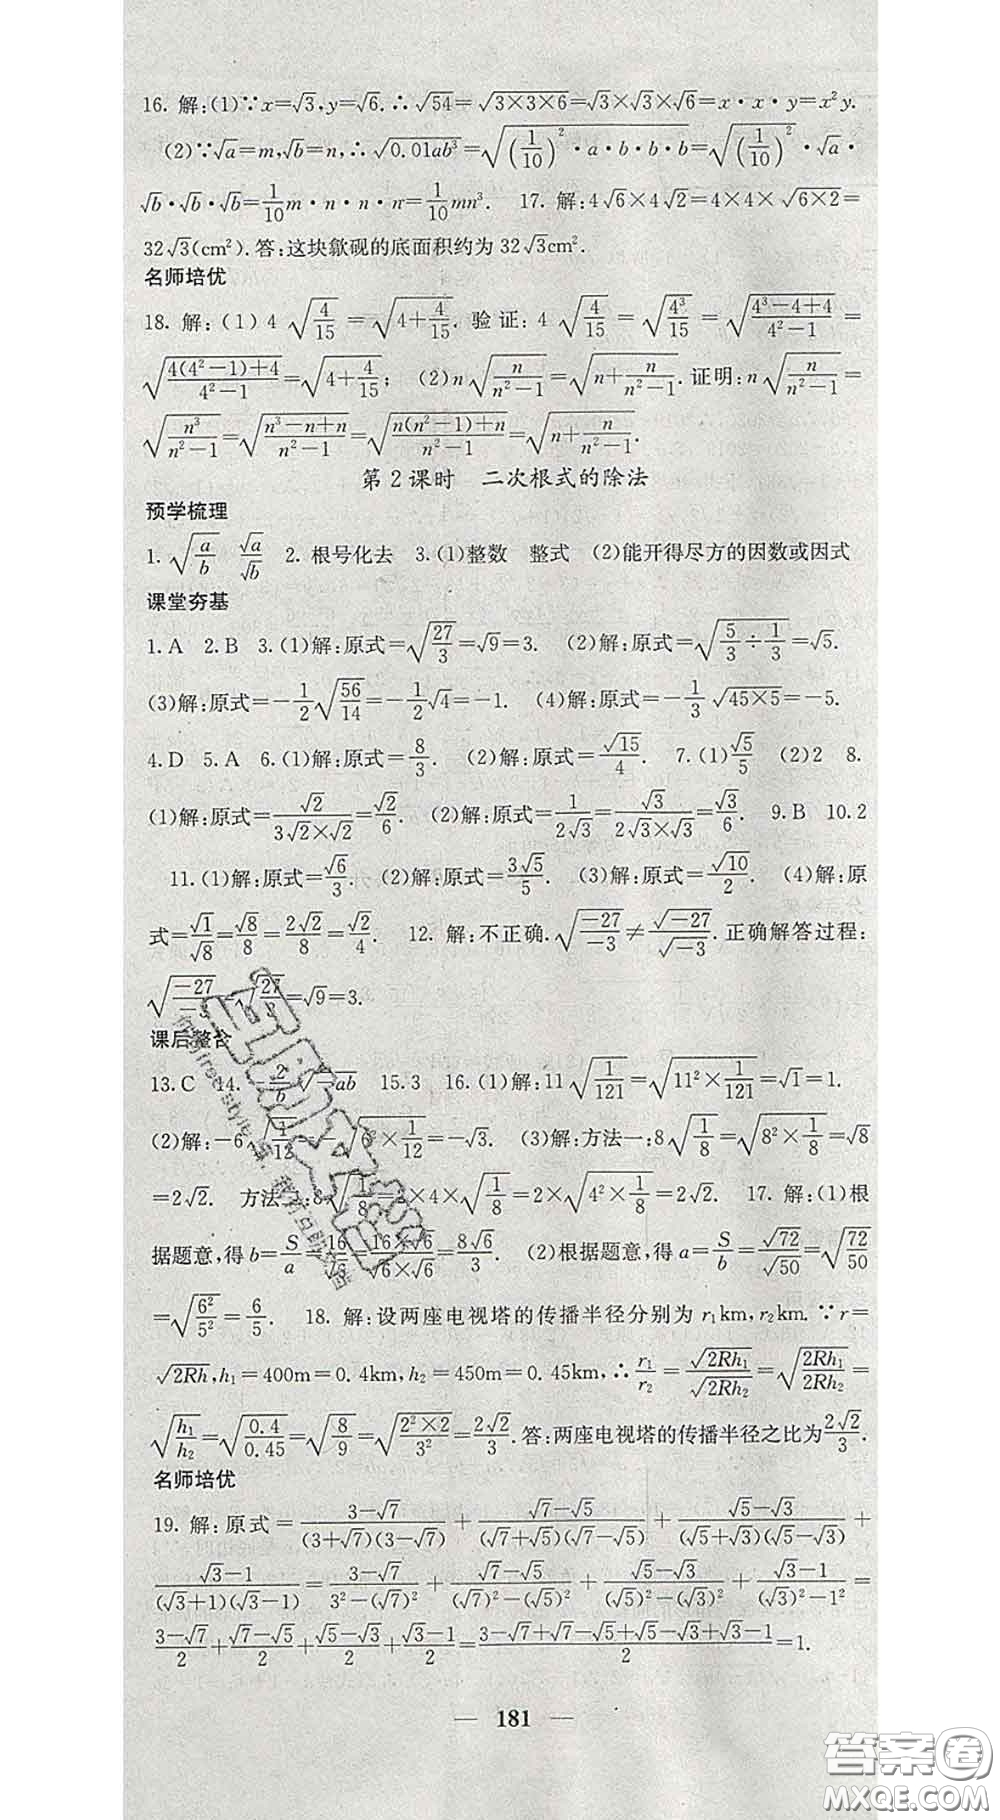 16. 解:(1)∵x=√3,y=√6.∴√54=√(3×3×6)=√3×√3×√6=x·x·y=x²y.
(2)∵√a=m,√b=n,∴√(0.01ab³)=√((1/10)²·a·b·b·b)=√((1/10)²)·√a·
√b·√b·√b=1/10 m·n·n·n=1/10 mn³. 17. 解:4√6×4√2=4×4×√(6×2)=
32√3(cm²).答:这块歙砚的底面积约为32√3cm².
名师培优
18. 解:(1)4√(4/15)=√(4+4/15).验证:4√(4/15)=√(4³/15)=√((4³-4+4)/(4²-1))=
√((4(4²-1)+4)/(4²-1))=√(4+4/15); (2)n√(n/(n²-1))=√(n+n/(n²-1)).证明:n√(n/(n²-1))=
√(n³/(n²-1))=√((n³-n+n)/(n²-1))=√((n(n²-1)+n)/(n²-1))=√(n+n/(n²-1)).
第2课时 二次根式的除法
预学梳理
1.√(a/b) √a/√b 2.根号化去 3.(1)整数 整式 (2)能开得尽方的因数或因式
课堂夯基
1.A 2.B 3.(1)解:原式=√(27/3)=√9=3. (2)解:原式=√(5/3÷1/3)=√5.
(3)解:原式=-1/2√(56/14)=-1/2√4=-1. (4)解:原式=-1/3√(45×5)=-5.
4.D 5.A 6.(1)解:原式=8/3. (2)解:原式=√15/4. 7.(1)√5/5 (2)2 8.
(1)解:原式=√2/(3√2×√2)=√2/6. (2)解:原式=1/(2√3)=√3/(2√3×√3)=√3/6. 9.B 10.2
11.(1)解:原式=√6/3. (2)解:原式=3√5/5. (3)解:原式=√10/2. (4)解:原
式=√1/√8=√8/8=2√2/8=√2/4. 12. 解:不正确.√(-27/-3)≠√-27/√-3.正确解答过程:
√(-27/-3)=√(27/3)=√9=3.
课后整合
13.C 14. 15.3 16.(1)解:11√(1/121)=√(11²×1/121)=√1=1.
(2)解:-6√(1/12)=-√(6²×1/12)=-√3. (3)解:方法一:8√(1/8)=√(8²×1/8)=√8
=2√2. 方法二:8√(1/8)=2×4×√(1/8)=2×√(4²×1/8)=2√2. 17. 解:(1)根
据题意,得b=S/a=16/√6=(16×√6)/(√6×√6)=8√6/3. (2)根据题意,得a=S/b=√72/√50=√(72/50)
=√(6²/5²)=6/5. 18. 解:设两座电视塔的传播半径分别为r₁km,r₂km.∵r=
√(2Rh),h₁=400m=0.4km,h₂=450m=0.45km,∴r₁/r₂=√(2Rh₁)/√(2Rh₂)=√(2Rh₁/2Rh₂)=
√(h₁/h₂)=√(0.4/0.45)=√(8/9)=√((2²×2)/3²)=2√2/3.答:两座电视塔的传播半径之比为2√2/3.
名师培优
19. 解:原式=(3-√7)/((3+√7)(3-√7))+(√7-√5)/((√7+√5)(√7-√5))+(√5-√3)/((√5+√3)(√5-√3))+
(√3-1)/((√3+1)(√3-1))=(3-√7)/(3²-(√7)²)+(√7-√5)/((√7)²-(√5)²)+(√5-√3)/((√5)²-(√3)²)+(√3-1)/((√3)²-1²)=
(3-√7)/2+(√7-√5)/2+(√5-√3)/2+(√3-1)/2=(3-√7+√7-√5+√5-√3+√3-1)/2=1.
— 181 —
答案圈
MXQE.COM